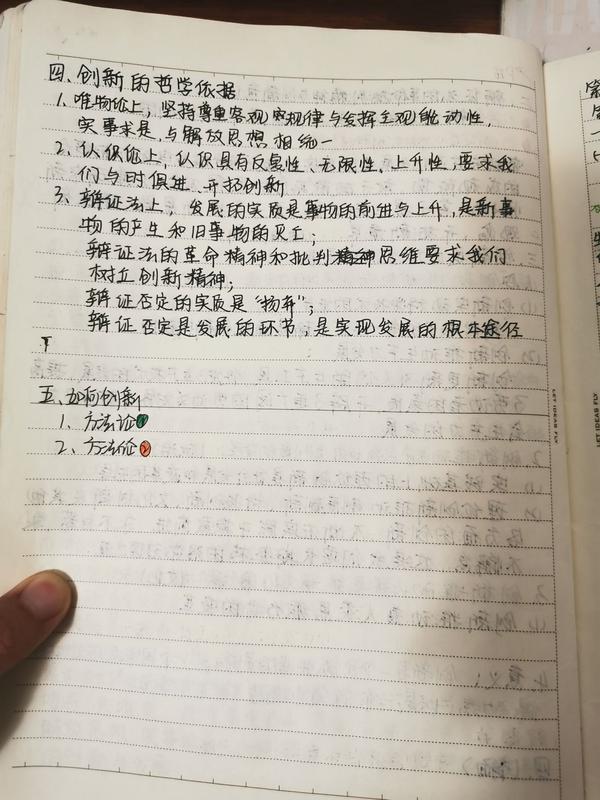 四、创新的哲学依据
1、唯物论上，坚持尊重客观规律与发挥主观能动性，
实事求是，与解放思想相统一
2、认识论上，认识具有反复性、无限性、上升性，要求我
们与时俱进、开拓创新
3、辩证法上，发展的实质是事物的前进与上升，是新事
物的产生和旧事物的灭亡；
辩证法的革命精神和批判思维要求我们
树立创新精神；
辩证否定的实质是“扬弃”；
辩证否定是发展的环节，是实现发展的根本途径
五、如何创新
1、方法论
2、方法论②
LET IDEAS FLY
LET IDEAS FLY